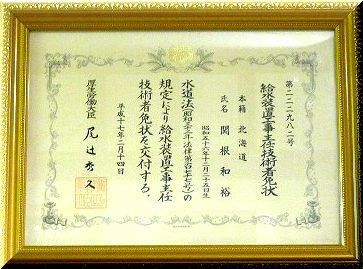 第二二二九八二号
給水装置工事主任技術者免状
本籍 北海道
氏名 関根和裕
昭和五十六年十二月二十五日生
水道法(昭和三十二年法律第百七十七号)の
規定により給水装置工事主任
技術者免状を交付する。
平成十七年二月十四日
厚生労働大臣 尾辻秀久